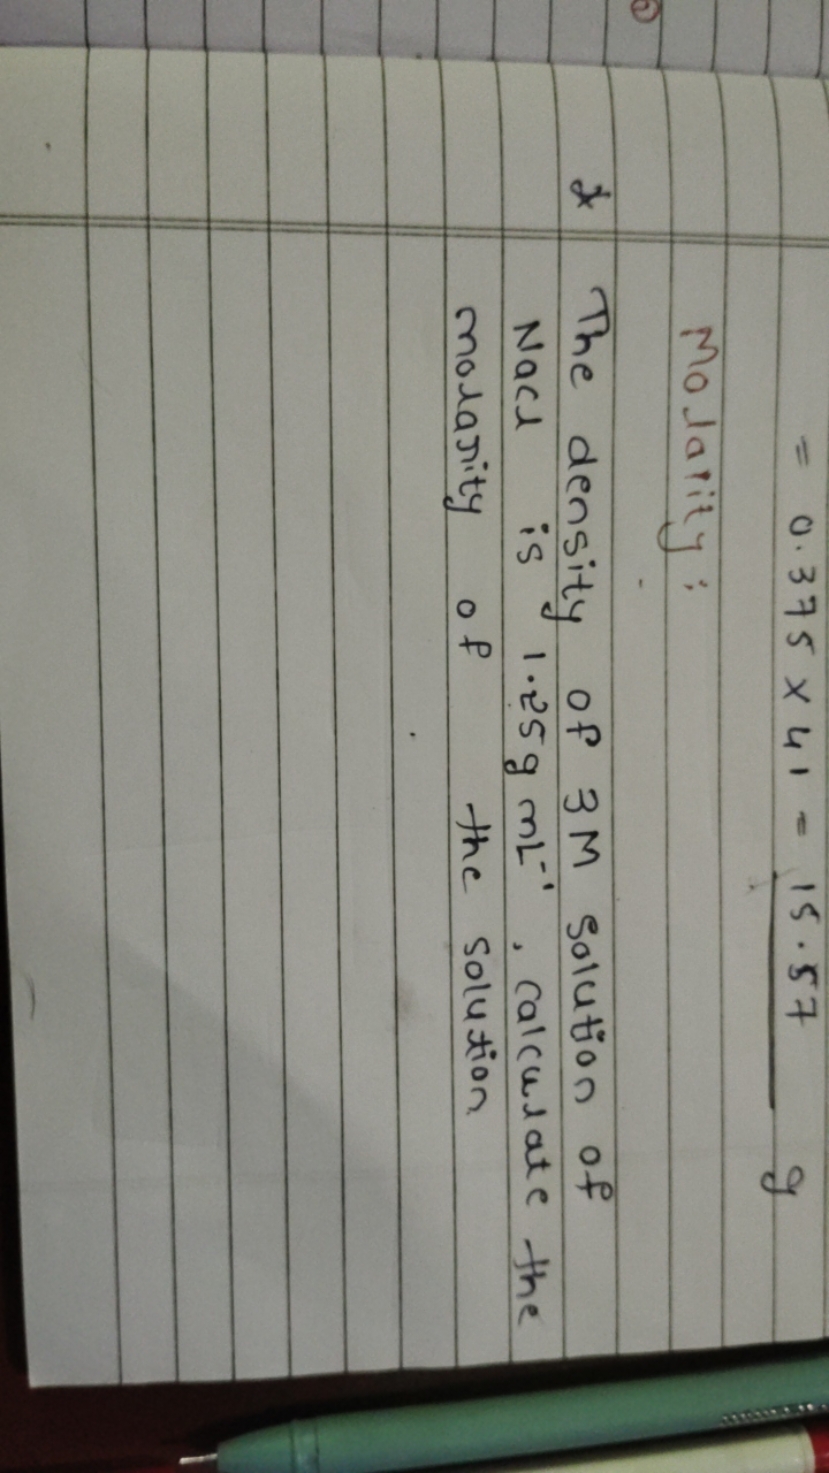 = 0.375 x 41 = 15.57 g
Molarity:
* The density of 3M solution of
Nacl is 1.25g mL⁻¹, calculate the
molarity of the solution